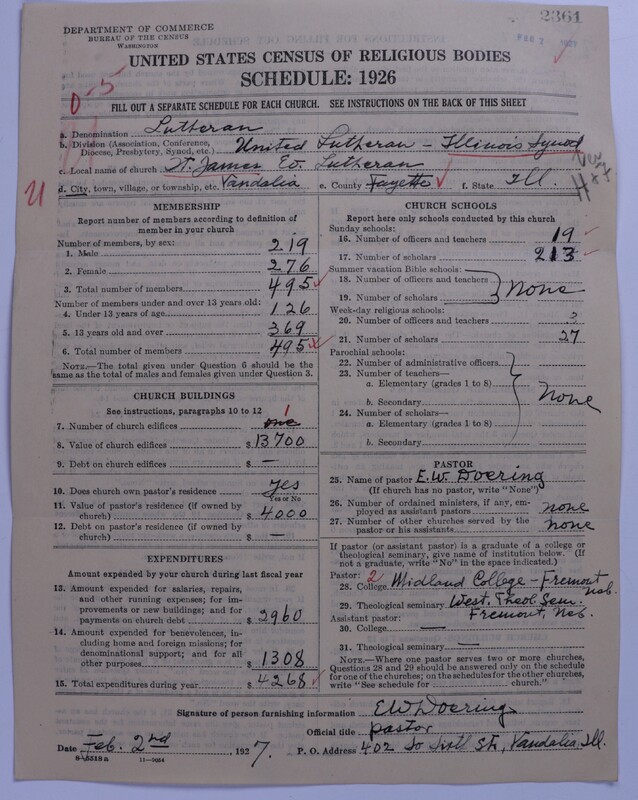 2361
DEPARTMENT OF COMMERCE
BUREAU OF THE CENSUS
WASHINGTON
FEB 7 1927
UNITED STATES CENSUS OF RELIGIOUS BODIES
SCHEDULE: 1926
0-5
FILL OUT A SEPARATE SCHEDULE FOR EACH CHURCH. SEE INSTRUCTIONS ON THE BACK OF THIS SHEET
a. Denomination Lutheran
b. Division (Association, Conference, Diocese, Presbytery, Synod, etc.) United Lutheran - Illinois Synod
c. Local name of church St. James Ev. Lutheran
d. City, town, village, or township, etc. Vandalia e. County Fayette f. State Ill.
MEMBERSHIP
Report number of members according to definition of
member in your church
Number of members, by sex:
1. Male 219
2. Female 276
3. Total number of members 495
Number of members under and over 13 years old:
4. Under 13 years of age 126
5. 13 years old and over 369
6. Total number of members 495
NOTE.—The total given under Question 6 should be
same as the total of males and females given under Question 3.
CHURCH BUILDINGS
See instructions, paragraphs 10 to 12
7. Number of church edifices one 1
8. Value of church edifices $ 13700
9. Debt on church edifices $ —
10. Does church own pastor's residence Yes
Yes or No
11. Value of pastor's residence (if owned by
church) $ 4000
12. Debt on pastor's residence (if owned by
church) $ —
EXPENDITURES
Amount expended by your church during last fiscal year
13. Amount expended for salaries, repairs,
and other running expenses; for im-
provements or new buildings; and for
payments on church debt $ 2960
14. Amount expended for benevolences, in-
cluding home and foreign missions; for
denominational support; and for all
other purposes $ 1308
15. Total expenditures during year $ 4268
CHURCH SCHOOLS
Report here only schools conducted by this church
Sunday schools:
16. Number of officers and teachers 19
17. Number of scholars 213
Summer vacation Bible schools:
18. Number of officers and teachers
19. Number of scholars
None
Week-day religious schools:
20. Number of officers and teachers
21. Number of scholars 27
Parochial schools:
22. Number of administrative officers
23. Number of teachers—
a. Elementary (grades 1 to 8)
b. Secondary
None
24. Number of scholars—
a. Elementary (grades 1 to 8)
b. Secondary
PASTOR
25. Name of pastor E.W. Doering
(If church has no pastor, write "None")
26. Number of ordained ministers, if any, em-
ployed as assistant pastors none
27. Number of other churches served by the
pastor or his assistants none
If pastor (or assistant pastor) is a graduate of a college or
theological seminary, give name of institution below. (If
not a graduate, write "No" in the space indicated.)
Pastor: 2
28. College Midland College - Fremont Neb.
29. Theological seminary West. Theol Sem.
Fremont, Neb.
Assistant pastor:
30. College —
31. Theological seminary —
NOTE.—Where one pastor serves two or more churches,
Questions 28 and 29 should be answered only on the schedule
for one of the churches; on the schedules for the other churches,
write "See schedule for church."
Signature of person furnishing information E W Doering
Official title pastor
Date Feb. 2nd, 1927. P. O. Address 402 So Sixth St, Vandalia, Ill.
8-5318 a 11—9054